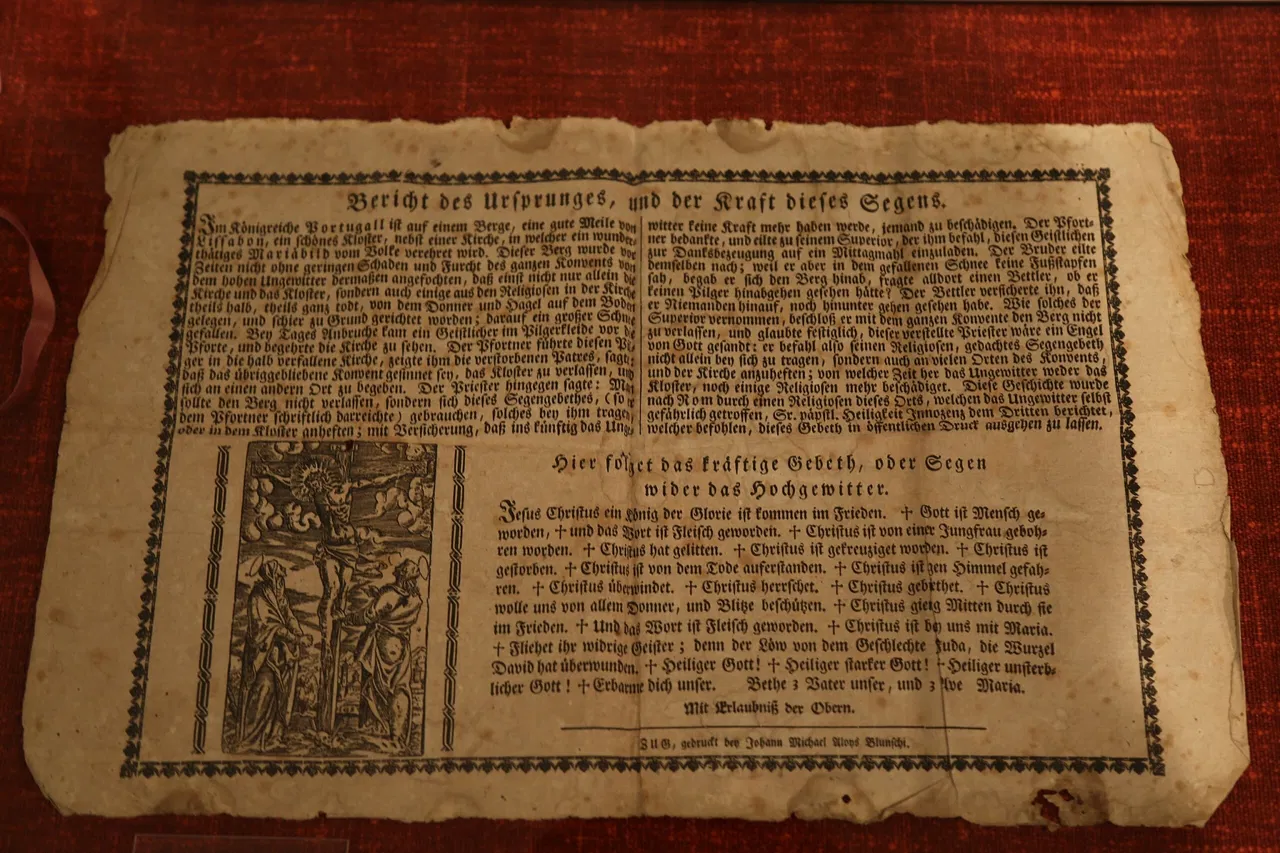 Bericht des Ursprunges, und der Kraft dieses Segens.
Im Königreiche Portugall ist auf einem Berge, eine gute Meile von
Lissabon, ein schönes Kloster, nebst einer Kirche, in welcher ein wunder-
thätiges Mariäbild vom Volke verehret wird. Dieser Berg wurde vor
Zeiten nicht ohne geringen Schaden und Furcht des ganzen Konvents von
dem hohen Ungewitter dermaßen angefochten, daß einst nicht nur allein die
Kirche und das Kloster, sondern auch einige aus den Religiosen in der Kirche
theils halb, theils ganz todt, von dem Donner und Hagel auf dem Boden
gelegen, und schier zu Grund gerichtet worden; darauf ein großer Schnee
gefallen. Bey Tages Anbruche kam ein Geistlicher im Pilgerkleide vor die
Pforte, und begehrte die Kirche zu sehen. Der Pfortner führte diesen Pil-
ger in die halb verfallene Kirche, zeigte ihm die verstorbenen Patres, sagte,
daß das übriggebliebene Konvent gesinnet sey, das Kloster zu verlassen, und
sich an einen andern Ort zu begeben. Der Priester hingegen sagte: Man
sollte den Berg nicht verlassen, sondern sich dieses Segengebethes, (so er
dem Pfortner schriftlich darreichte) gebrauchen, solches bey ihm tragen,
oder in dem Kloster anheften; mit Versicherung, daß ins künftig das Unge-
witter keine Kraft mehr haben werde, jemand zu beschädigen. Der Pfort-
ner bedankte, und eilte zu seinem Superior, der ihm befahl, diesen Geistlichen
zur Danksbezeugung auf ein Mittagmahl einzuladen. Der Bruder eilte
demselben nach; weil er aber in dem gefallenen Schnee keine Fußstapfen
sah, begab er sich den Berg hinab, fragte alldort einen Bettler, ob er
keinen Pilger hinabgehen gesehen hätte? Der Bettler versicherte ihn, daß
er Niemanden hinauf, noch hinunter gehen gesehen habe. Wie solches der
Superior vernommen, beschloß er mit dem ganzen Konvente den Berg nicht
zu verlassen, und glaubte festiglich, dieser verstellte Priester wäre ein Engel
von Gott gesandt: er befahl also seinen Religiosen, gedachtes Segengebeth
nicht allein bey sich zu tragen, sondern auch an vielen Orten des Konvents,
und der Kirche anzuheften; von welcher Zeit her das Ungewitter weder das
Kloster, noch einige Religiosen mehr beschädiget. Diese Geschichte wurde
nach Rom durch einen Religiosen dieses Orts, welchen das Ungewitter selbst
gefährlich getroffen, Sr. päpstl. Heiligkeit Innozenz dem Dritten berichtet,
welcher befohlen, dieses Gebeth in öffentlichen Druck ausgehen zu lassen.
Hier folget das kräftige Gebeth, oder Segen
wider das Hochgewitter.
Jesus Christus ein König der Glorie ist kommen im Frieden. † Gott ist Mensch ge-
worden, † und das Wort ist Fleisch geworden. † Christus ist von einer Jungfrau geboh-
ren worden. † Christus hat gelitten. † Christus ist gekreuziget worden. † Christus ist
gestorben. † Christus ist von dem Tode auferstanden. † Christus ist gen Himmel gefah-
ren. † Christus überwindet. † Christus herrschet. † Christus gebethet. † Christus
wolle uns von allem Donner, und Blitze beschützen. † Christus gieng Mitten durch sie
im Frieden. † Und das Wort ist Fleisch geworden. † Christus ist bey uns mit Maria.
† Fliehet ihr widrige Geister; denn der Löw von dem Geschlechte Juda, die Wurzel
David hat überwunden. † Heiliger Gott! † Heiliger starker Gott! † Heiliger unsterb-
licher Gott! † Erbarme dich unser. Bethe 3 Vater unser, und 3 Ave Maria.
Mit Erlaubniß der Obern.
ZUG, gedruckt bey Johann Michael Aloys Blunschi.